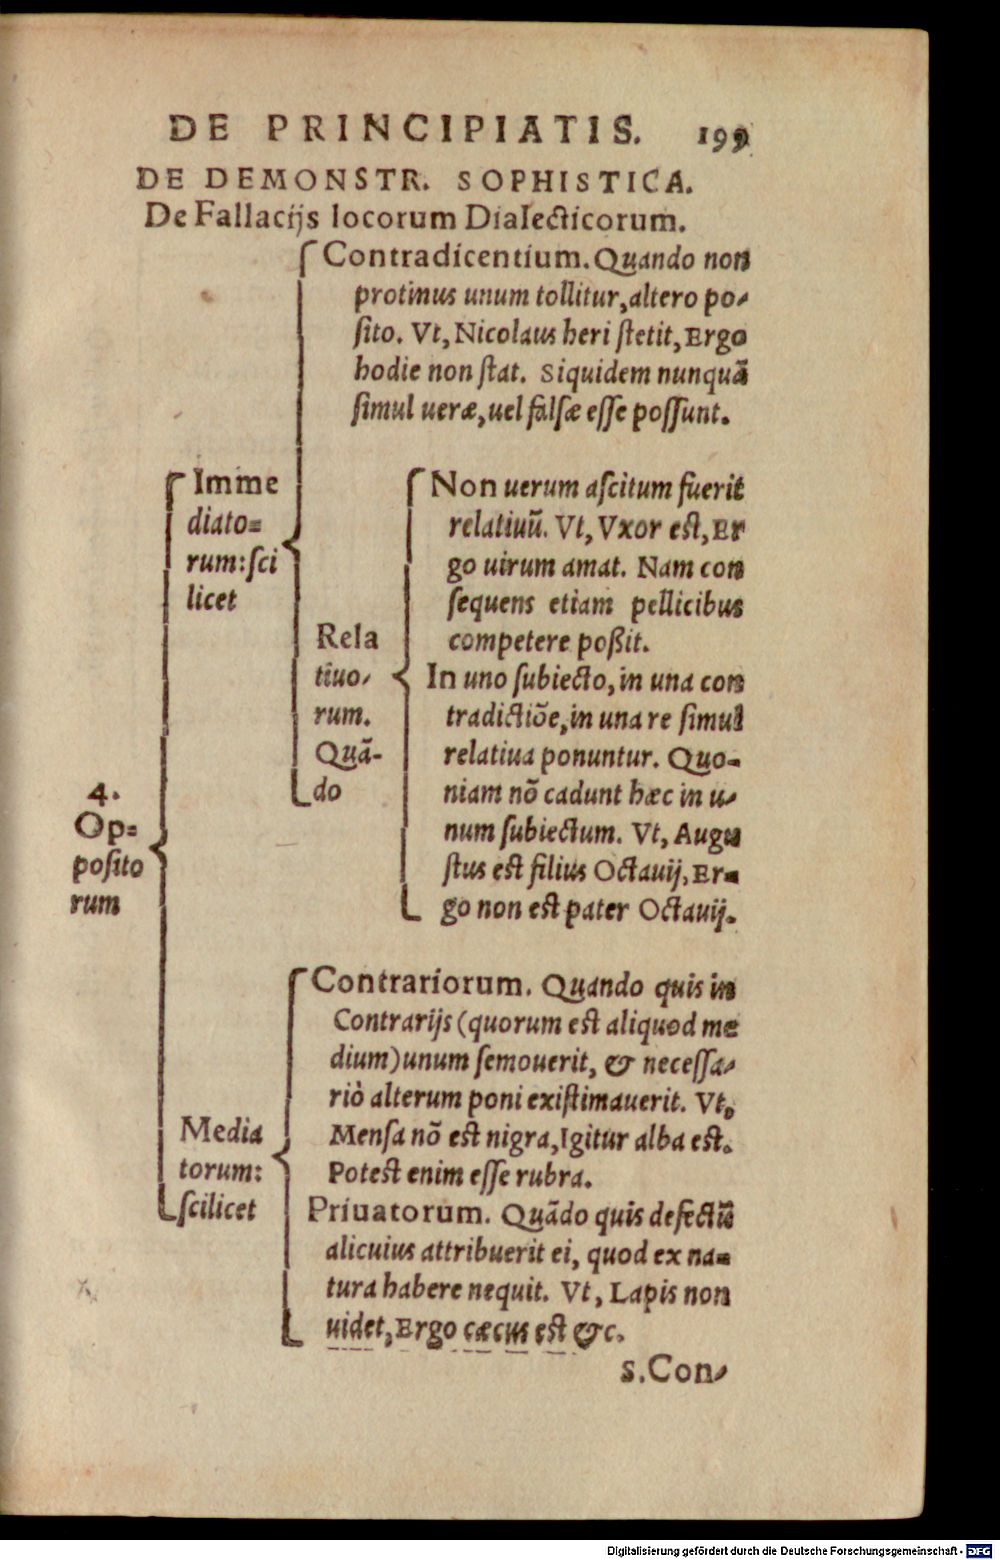 DE PRINCIPIATIS. 199
DE DEMONSTR. SOPHISTICA.
De Fallacijs locorum Dialecticorum.
4.
Op=
poſito
rum
Imme
diato=
rum:ſci
licet
Contradicentium. Quando non
protinus unum tollitur, altero po-
ſito. Vt, Nicolaus heri ſtetit, Ergo
hodie non ſtat. Siquidem nunquã
ſimul ueræ, uel falſæ eſſe poſſunt.
Rela
tiuo-
rum.
Quã-
do
Non uerum aſcitum fuerit
relatiuũ. Vt, Vxor eſt, Er
go uirum amat. Nam con
ſequens etiam pellicibus
competere poßit.
In uno ſubiecto, in una con
tradictiõe, in una re ſimul
relatiua ponuntur. Quo-
niam nõ cadunt hæc in u-
num ſubiectum. Vt, Augu
ſtus eſt filius Octauij, Er-
go non eſt pater Octauij.
Media
torum:
ſcilicet
Contrariorum. Quando quis in
Contrarijs (quorum eſt aliquod me
dium) unum ſemouerit, & neceſſa-
riò alterum poni exiſtimauerit. Vt,
Menſa nõ eſt nigra, Igitur alba eſt.
Poteſt enim eſſe rubra.
Priuatorum. Quãdo quis defectũ
alicuius attribuerit ei, quod ex na-
tura habere nequit. Vt, Lapis non
uidet, Ergo cæcus eſt &c.
s. Con-
Digitalisierung gefördert durch die Deutsche Forschungsgemeinschaft - DFG